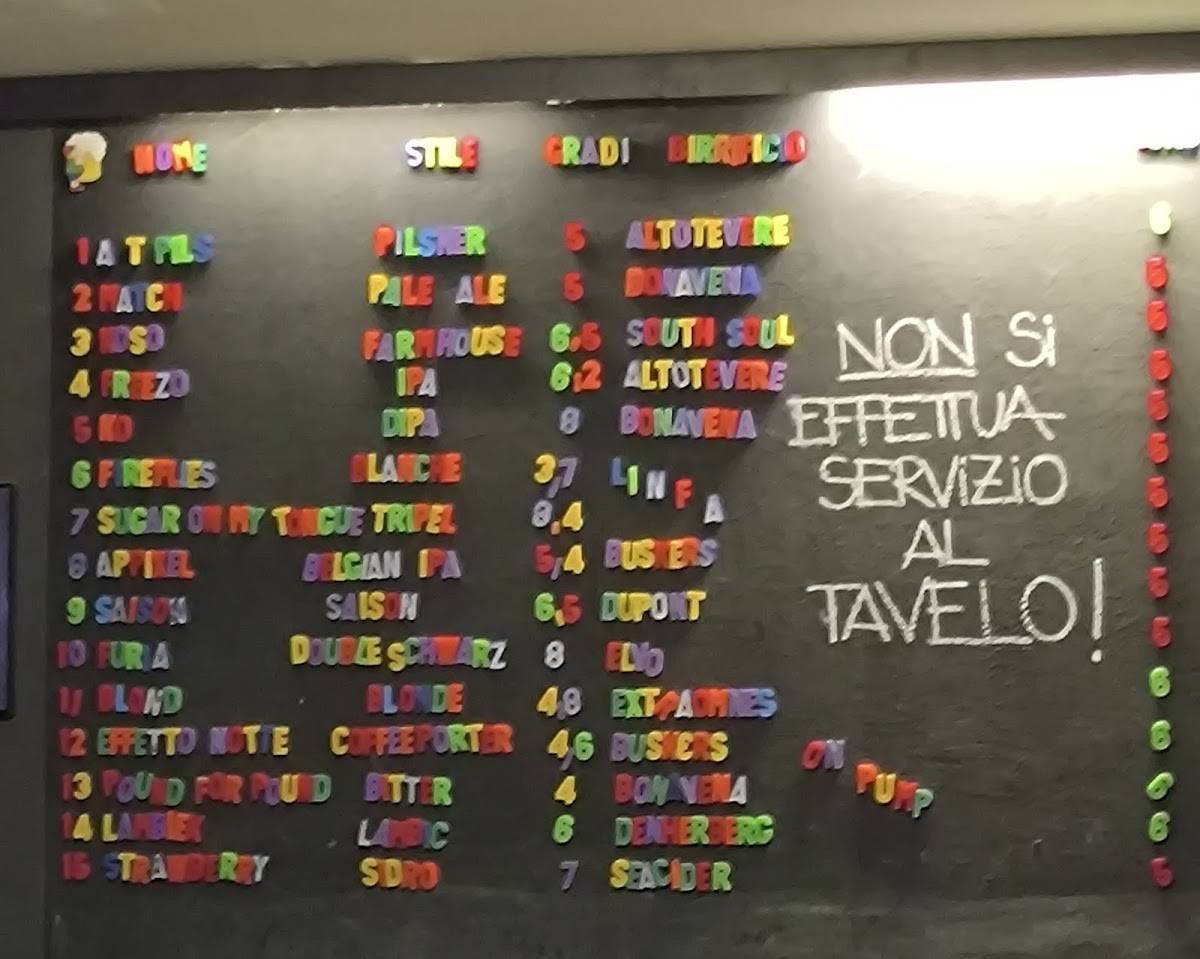 NOME STILE GRADI BIRRIFICIO
1 A T PILS PILSNER 5 ALTOTEVERE 6
2 MATCH PALE ALE 5 BONAVENA 5
3 KOSO FARMHOUSE 6,5 SOUTH SOUL 5
4 FREEZO IPA 6,2 ALTOTEVERE 5
5 KO DIPA 8 BONAVENA 5
6 FIREFLIES BLANCHE 3,7 LINFA 5
7 SUGAR ON MY TONGUE TRIPEL 8,4 5
8 APPIXEL BELGIAN IPA 5,4 BUSKERS 5
9 SAISON SAISON 6,5 DUPONT 5
10 FURIA DOUBLE SCHWARZ 8 ELVO 5
11 BLOND BLONDE 4,8 EXTRAOMNES 6
12 EFFETTO NOTTE COFFEEPORTER 4,6 BUSKERS 6
13 POUND FOR POUND BITTER 4 BONAVENA ON PUMP 6
14 LAMBIEK LAMBIC 6 DENHERBERG 6
15 STRAWBERRY SIDRO 7 SEACIDER 5
NON Si
EFFETTUA
SERViZiO
AL
TAVELO!